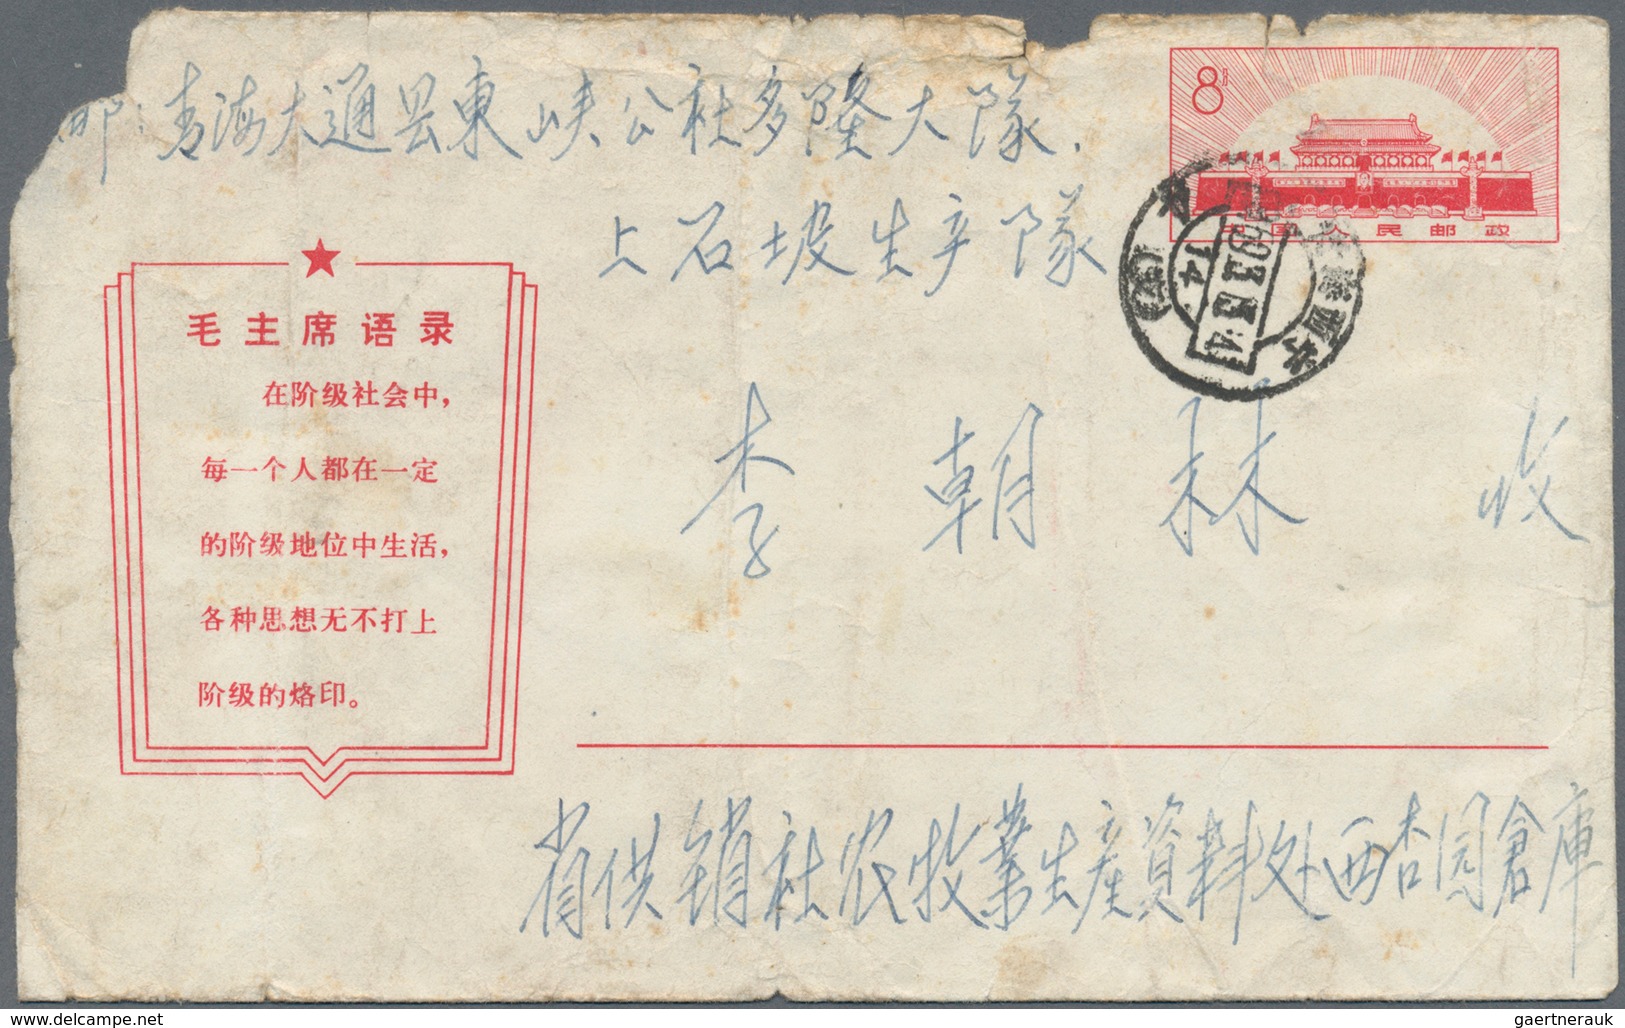 邮:青海大通县東峡公社多隆大隊.
8分
中国人民邮政
上石坡生产隊
14
毛主席语录
在阶级社会中,
每一个人都在一定
的阶级地位中生活,
各种思想无不打上
阶级的烙印。
李朝林 收
省供销社农牧業生產資料处西杏园倉庫
delcampe.net
gaertnerauk